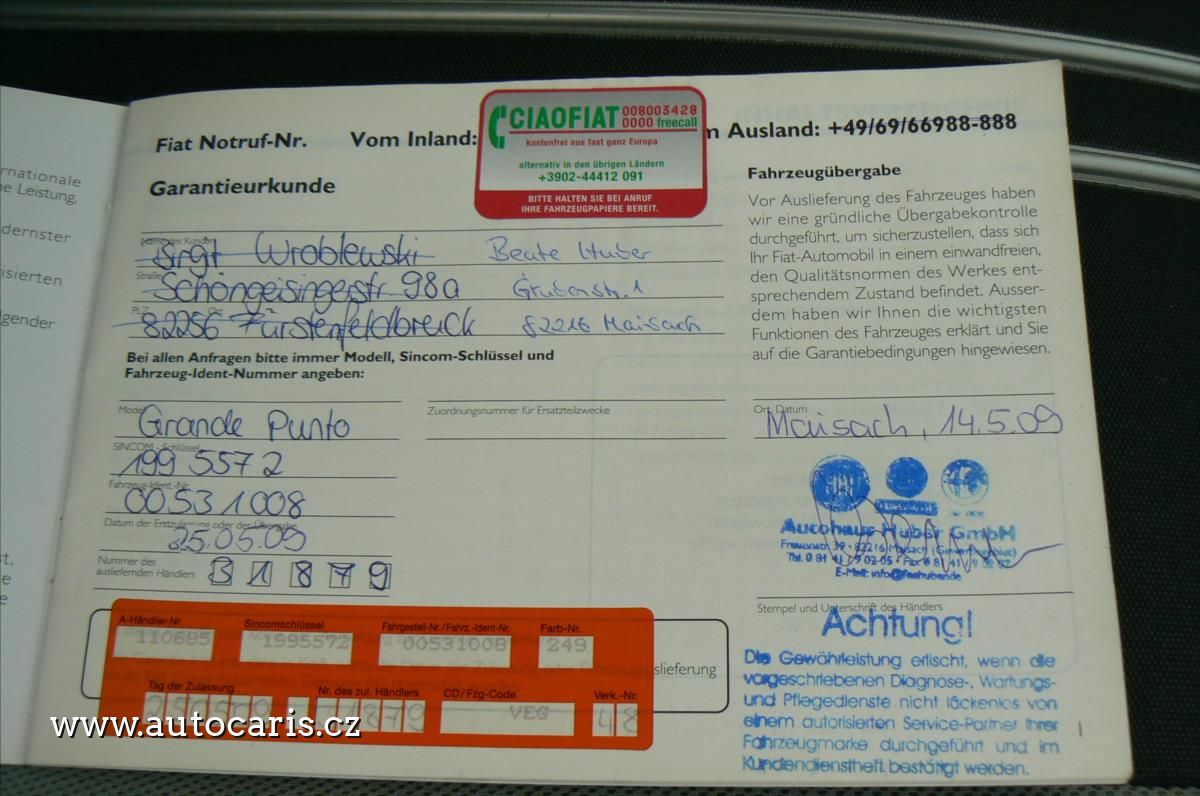 rnationale
ne Leistung,
dernster
isierten
lgender
st,
e
e
Fiat Notruf-Nr. Vom Inland:
CIAOFIAT 008003428
0000 freecall
kostenfrei aus fast ganz Europa
alternativ in den übrigen Ländern
+3902-44412 091
BITTE HALTEN SIE BEI ANRUF
IHRE FAHRZEUGPAPIERE BEREIT.
m Ausland: +49/69/66988-888
Garantieurkunde
Name des Kunden
Birgit Wroblewski Beate Huber
Straße
Schöngeisingerstr. 98a Grubenstr. 1
PLZ Ort
82256 Fürstenfeldbruck 82216 Maisach
Bei allen Anfragen bitte immer Modell, Sincom-Schlüssel und
Fahrzeug-Ident-Nummer angeben:
Modell
Grande Punto
Zuordnungsnummer für Ersatzteilzwecke
SINCOM-Schlüssel
199 557 2
Fahrzeug-Ident.-Nr.
00531008
Datum der Erstzulassung oder der Übergabe
25.05.09
Nummer des
ausliefernden Händlers
3 1 8 7 9
A-Händler-Nr. Sincomschlüssel Fahrgestell-Nr./Fahrz.-Ident-Nr. Farb-Nr.
110685 1995572 00531008 249
slieferung
Tag der Zulassung Nr. des zul. Händlers CD/Fzg-Code Verk.-Nr.
31879 VEG 48
Fahrzeugübergabe
Vor Auslieferung des Fahrzeuges haben
wir eine gründliche Übergabekontrolle
durchgeführt, um sicherzustellen, dass sich
Ihr Fiat-Automobil in einem einwandfreien,
den Qualitätsnormen des Werkes ent-
sprechendem Zustand befindet. Ausser-
dem haben wir Ihnen die wichtigsten
Funktionen des Fahrzeuges erklärt und Sie
auf die Garantiebedingungen hingewiesen.
Ort, Datum
Maisach, 14.5.09
Autohaus Huber GmbH
Frauenstr. 39 · 82216 Maisach (Gewerbegebiet)
Tel. 0 81 41 / 9 02 05 · Fax 0 81 41 / 9
E-Mail: info@
Stempel und Unterschrift des Händlers
Achtung!
Die Gewährleistung erlischt, wenn die
vorgeschriebenen Diagnose-, Wartungs-
und Pflegedienste nicht lückenlos von
einem autorisierten Service-Partner Ihrer
Fahrzeugmarke durchgeführt und im
Kundendienstheft bestätigt werden.
1
www.autocaris.cz